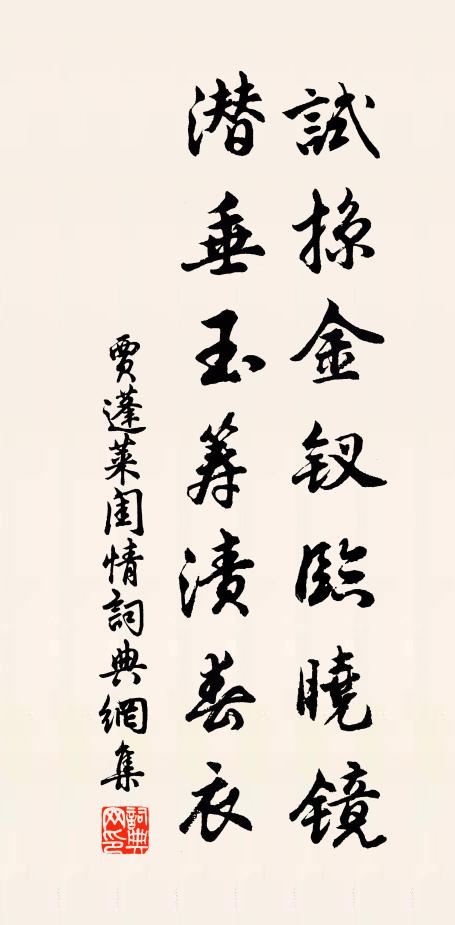 試掠金釵臨曉鏡
潜垂玉筹漬春衣
賈蓬萊閨情詞典網集
詞典網印